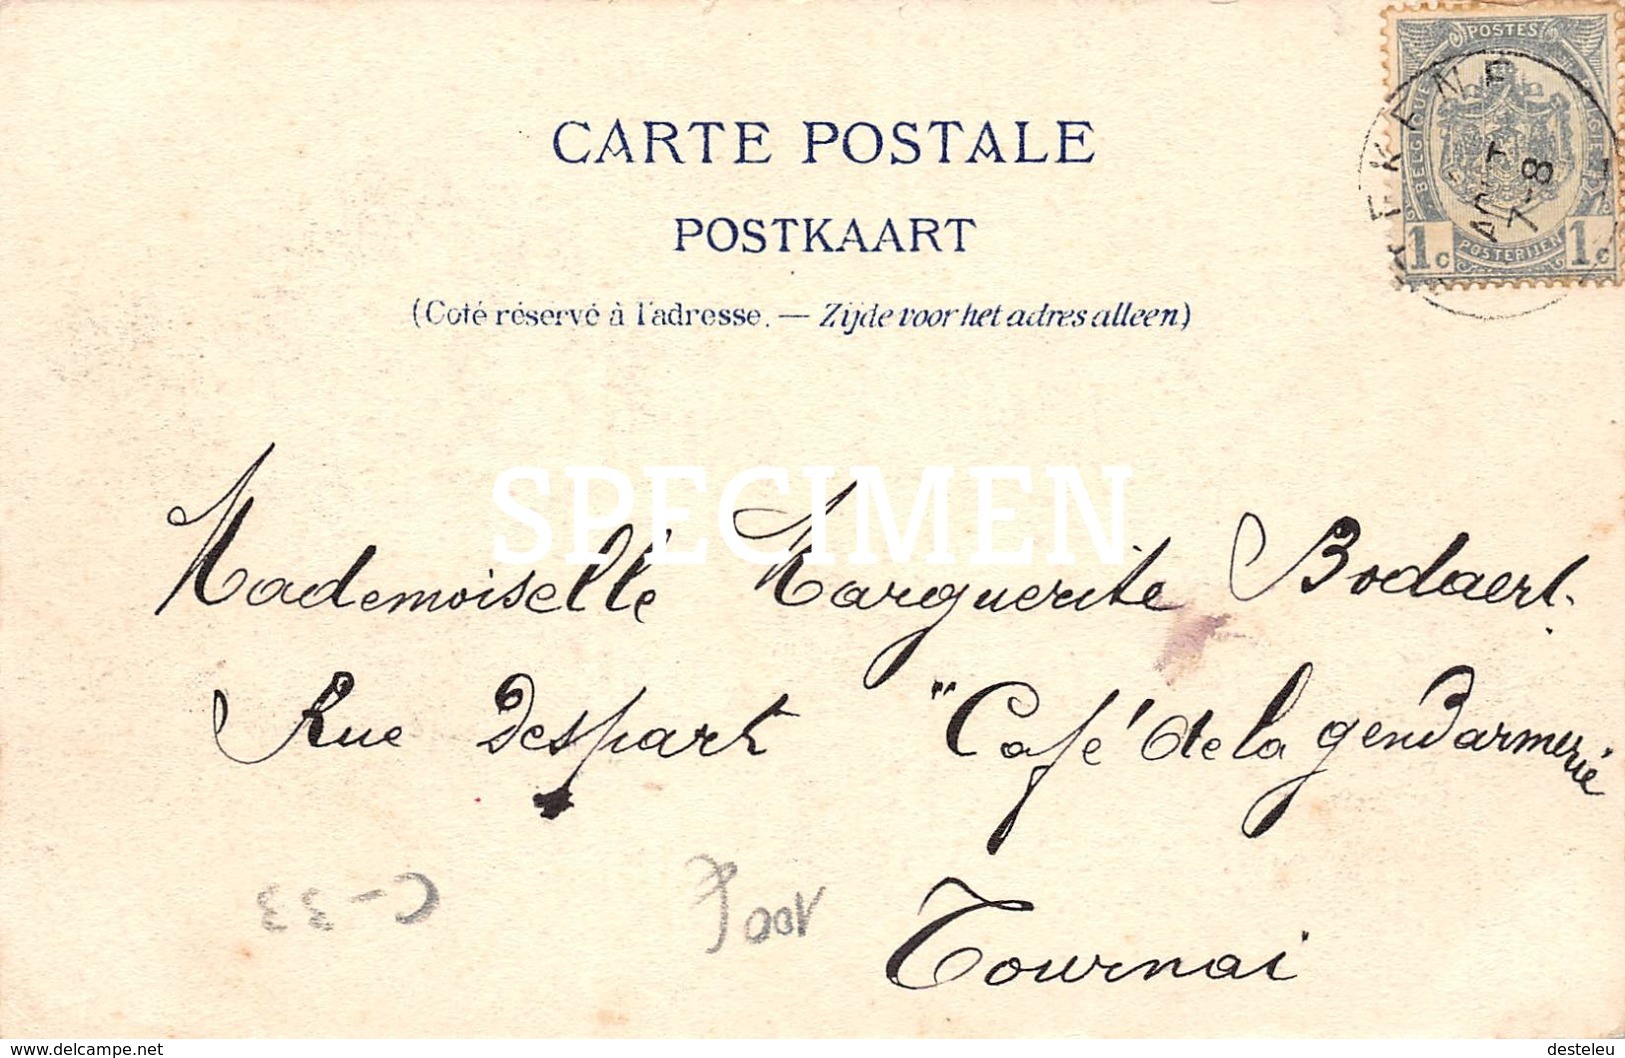 CARTE POSTALE
POSTKAART
(Coté réservé à l'adresse. — Zijde voor het adres alleen)
POSTES
BELGIQUE BELGIË
POSTERIJEN
1c 1c
AOUT
7-8
SPECIMEN
Mademoiselle Marguerite Bodaert.
Rue Despart "Café de la gendarmerie
Tournai
C-33
www.delcampe.net
desteleu